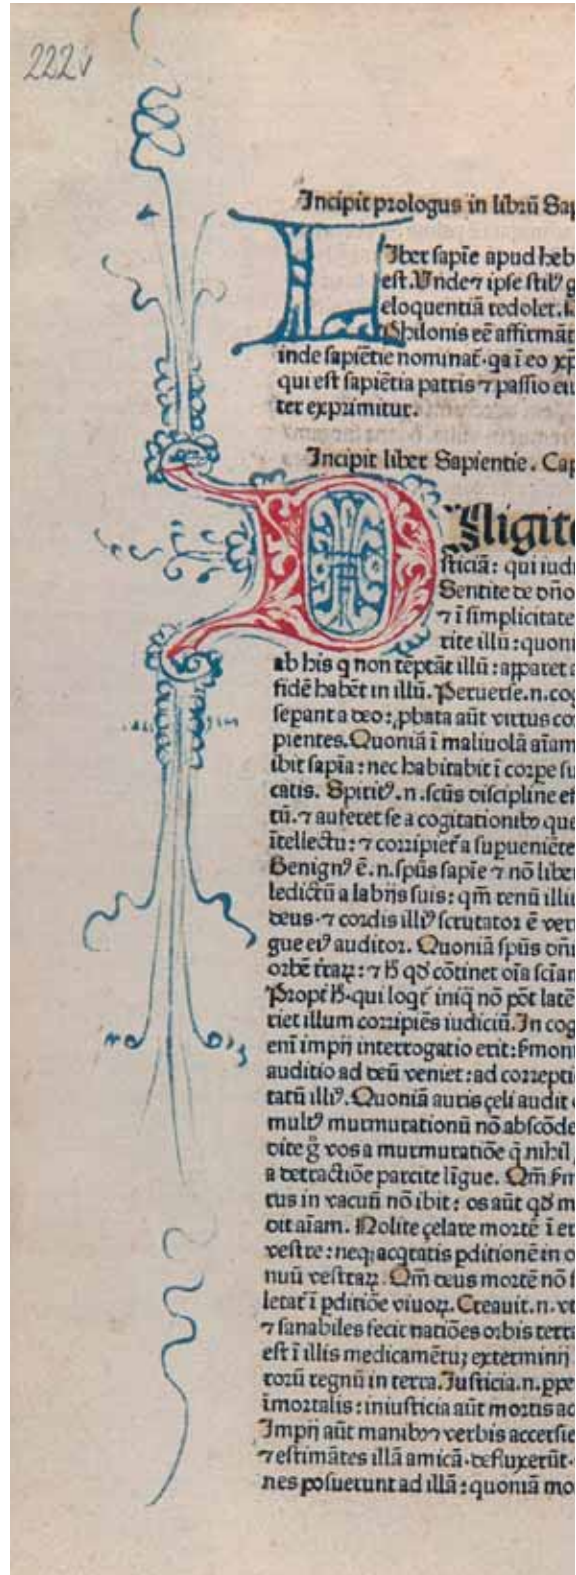 222v
Incipit prologus in librū Sap
LIber sapiē apud heb
est. Unde⁊ ipse stilꝰ g
eloquentiā redolet.
Philonis eē affirmāt
inde sapiētie nominat̄·qa ī eo xp̄
qui est sapiētia patris ⁊ passio eiu
ter exprimitur.
Incipit liber Sapientie. Cap
DIligite
sticiā: qui iudi
Sentite de dn̄o
⁊ ī simplicitate
rite illū: quoni
ab his q̄ non tēptāt illū: apparet a
fidē habēt in illū. Peruerse.n.cog
separant a deo: ꝓbata aūt virtus cor
pientes. Quoniā ī maliuolā aīam
ibit sapīa: nec habitabit ī corpe su
catis. Spiritꝰ.n.scūs discipline ef
tū.⁊ auferet se a cogitationibꝰ que
ītellectu: ⁊ corripiet̄ a supueniēte
Benignꝰ ē.n.spūs sapīe ⁊ nō liber
ledictū a labijs suis: qm̄ renū illiu
deus·⁊ cordis illiꝰ scrutator ē veru
gue eiꝰ auditor. Quoniā spūs dn̄i
orbē trarꝝ: ⁊ h̄ qd̄ cōtinet oīa sciam
Propt̄ h̄·qui loqt̄ iniq̄ nō pōt latē
riet illum corripiēs iudiciū. In cog
enī impij interrogatio erit: ẜmonū
auditio ad deū veniet: ad correptio
tatū illiꝰ. Quoniā auris çeli audit o
multꝰ murmurationū nō abscōde
dite g̊ vos a murmuratiōe q̄ nihil
a detractiōe parcite līgue. Qm̄ ẜm
tus in vacuū nō ibit: os aūt qd̄ m
dit aīam. Nolite çelare mortē ī er
vestre: neqꝫ acq̄ratis pditionē in o
nuū vestrarꝝ. Qm̄ deus mortē nō f
letat̄ ī pditiōe viuorꝝ. Creauit.n.vt
⁊ sanabiles fecit natiōes orbis terra
est ī illis medicamētuꝫ exterminij
rorū regnū in terra. Iusticia.n.ppe
īmortalis: iniusticia aūt mortis ac
Impij aūt manibꝰ⁊ verbis accersie
⁊ estimātes illā amicā·defluxerūt·
nes posuerunt ad illā: quoniā mo